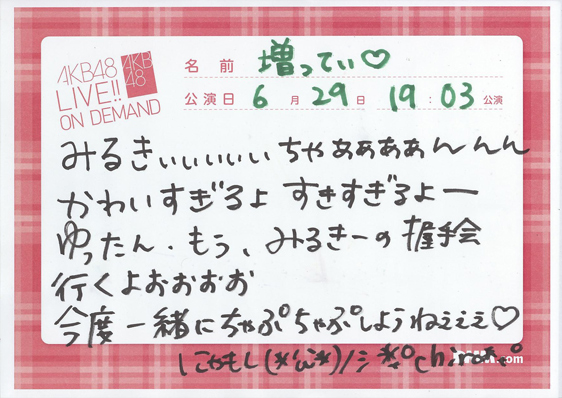 AKB48
LIVE!!
ON DEMAND
AKB
48
名前 増ってぃ♡
公演日 6月29日 19:03公演
みるきぃぃぃぃぃちゃぁぁぁぁんんん
かわいすぎるよ すきすぎるよー
ゆったん、もう、みるきーの握手会
行くよおおおお
今度一緒にちゃぷちゃぷしようねぇぇぇ♡